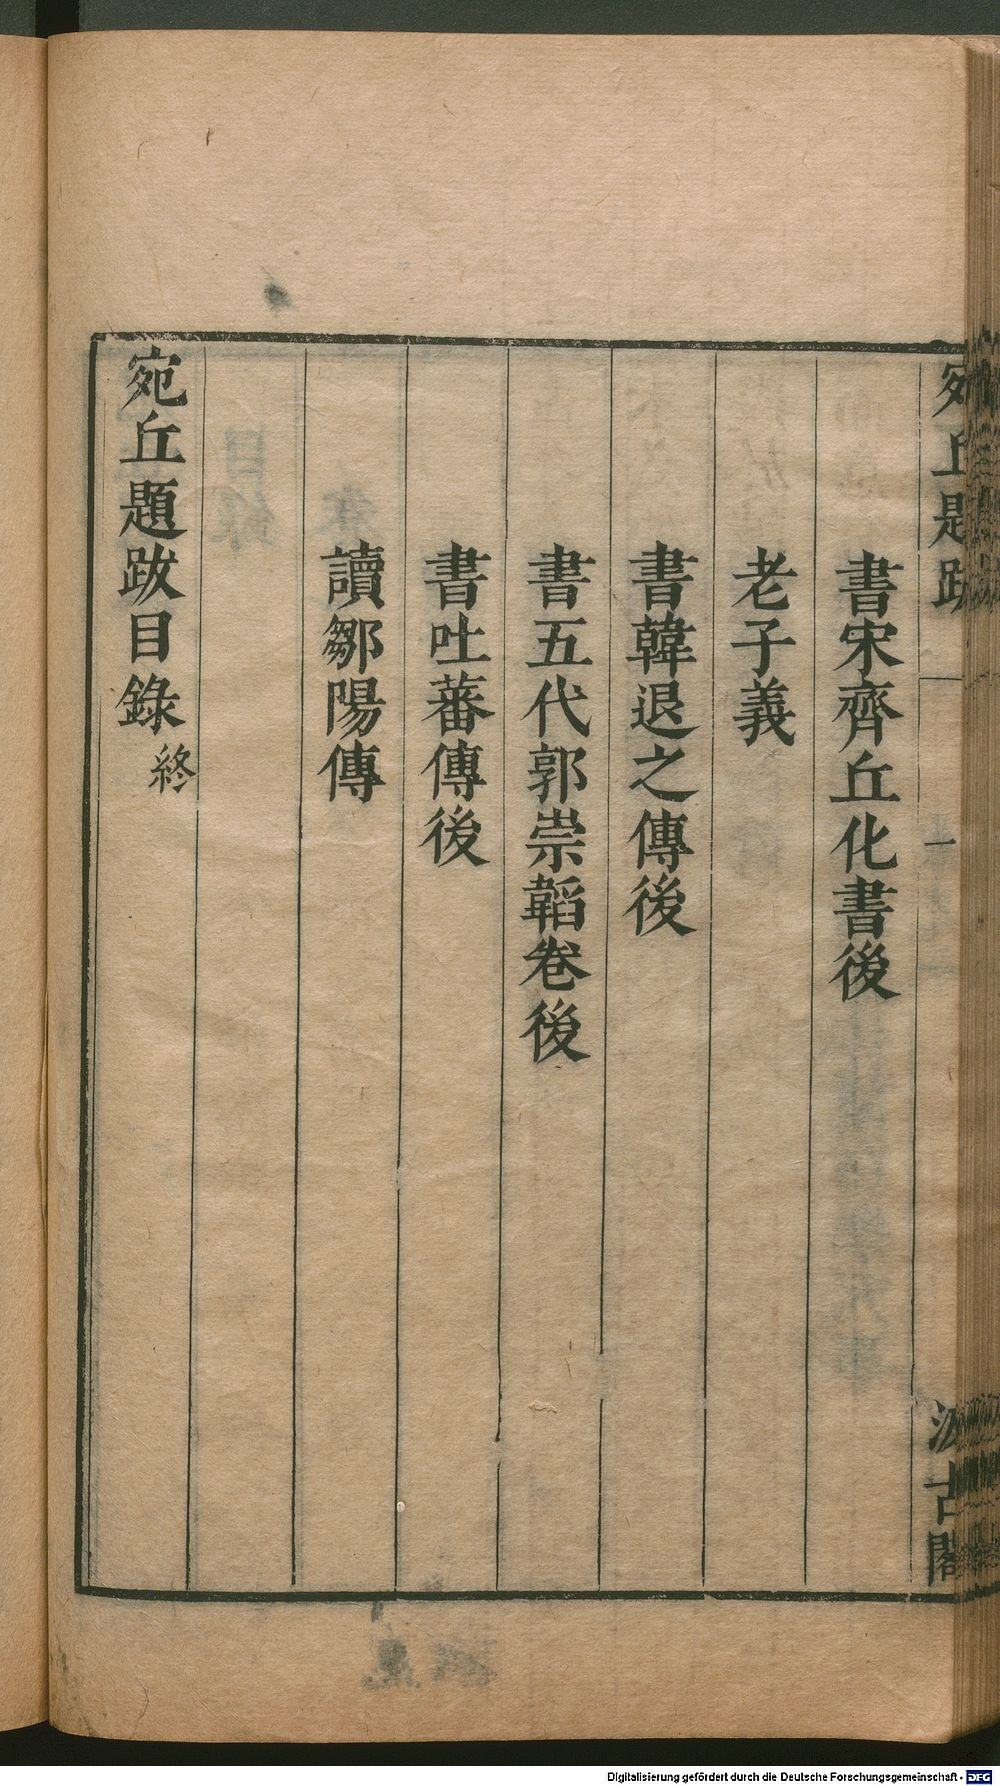 宛丘題跋
一
汲古閣
書宋齊丘化書後
老子義
書韓退之傳後
書五代郭崇韜卷後
書吐蕃傳後
讀鄒陽傳
宛丘題跋目錄終
Digitalisierung gefördert durch die Deutsche Forschungsgemeinschaft - DFG